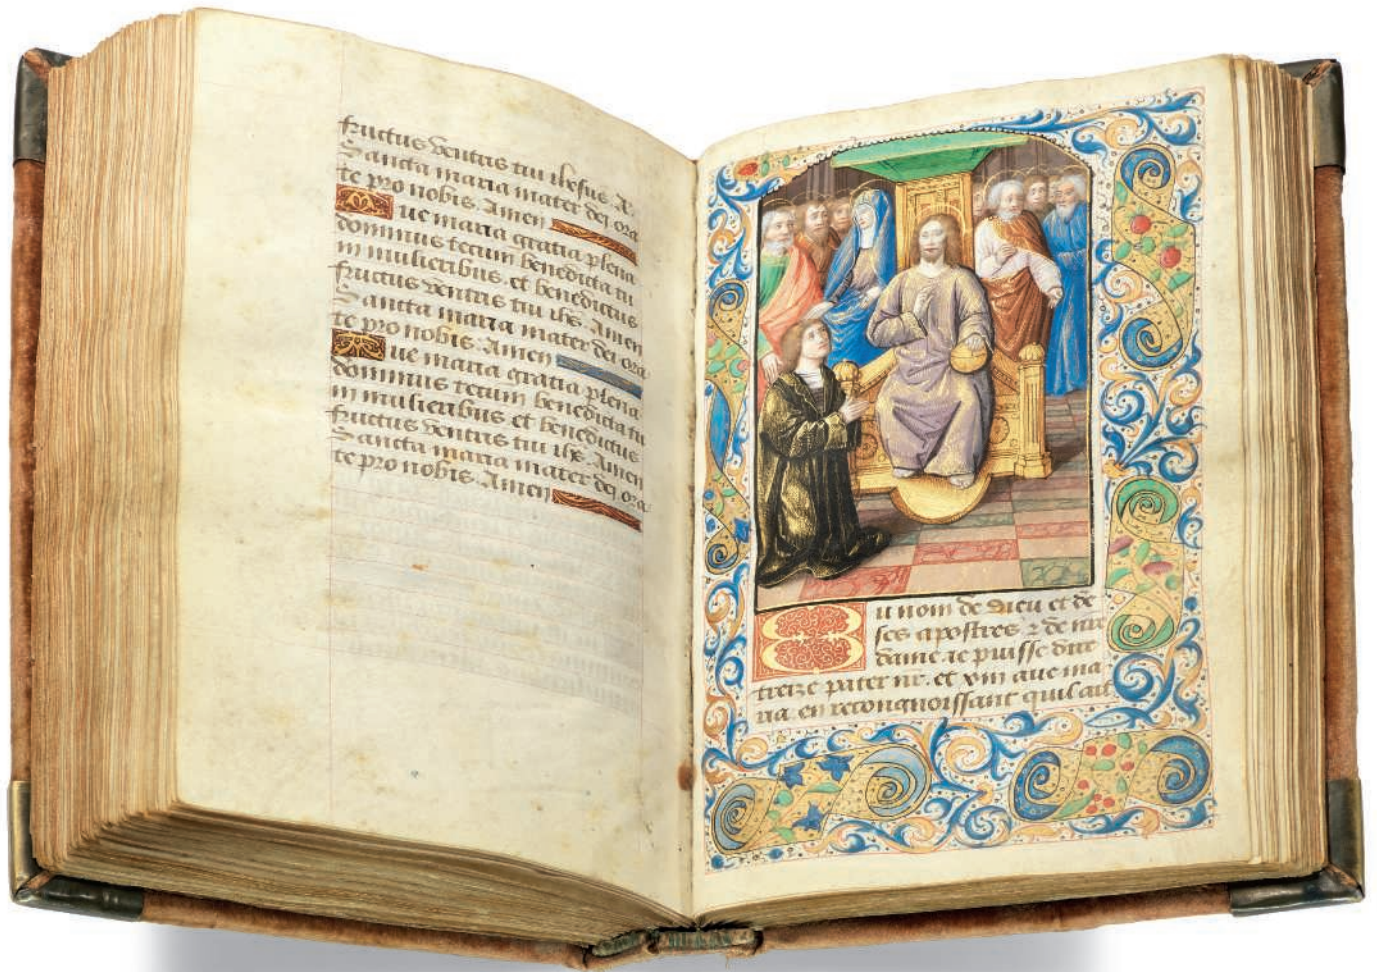 fructus ventris tui ihesus A.
Sancta maria mater dei ora
te pro nobis. Amen
Aue maria gratia plena
dominus tecum benedicta tu
in mulieribus. et benedictus
fructus ventris tui ihs. Amen
Sancta maria mater dei ora
te pro nobis. Amen
Aue maria gratia plena
dominus tecum benedicta tu
in mulieribus et benedictus
fructus ventris tui ihs. Amen
Sancta maria mater dei ora
te pro nobis. Amen
u nom de dieu et de
ses apostres & de nre
dame. ie puisse dire
treize pater nr. et xiii aue ma
ria. en recongnoissant quil